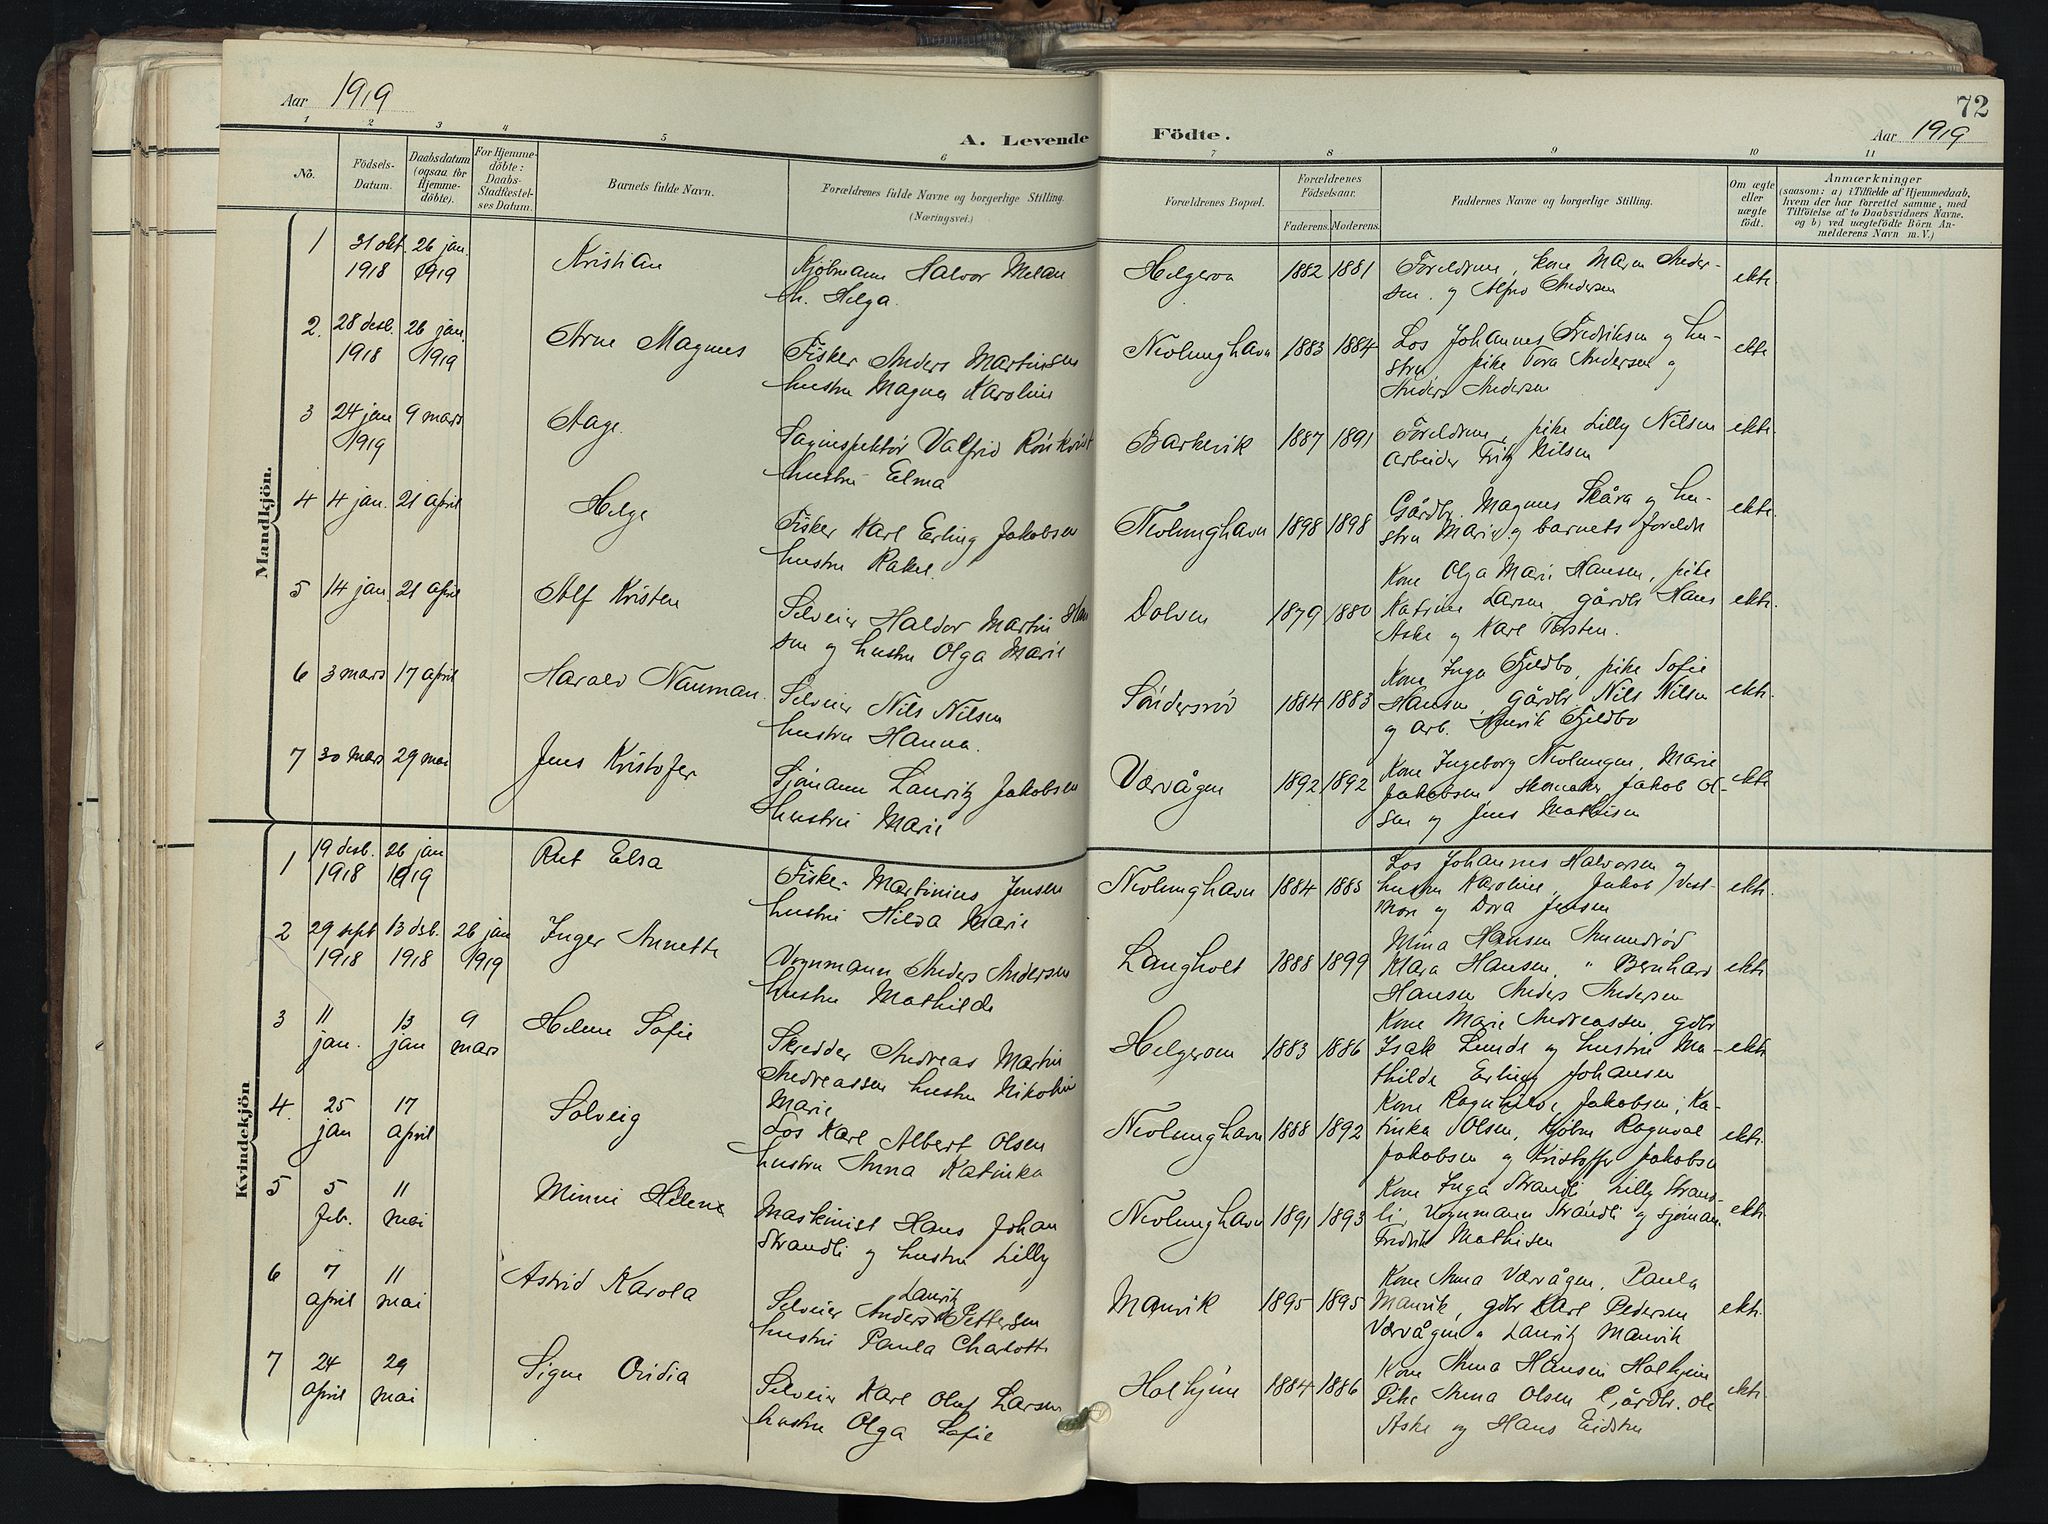 Aar 1919
A. Levende Födte.
72
Aar 1919
1 2 3 4 5 6 7 8 9 10 11
No.
Födsels-Datum.
Daabsdatum (ogsaa for Hjemme-döbte).
For Hjemme-döbte: Daabs-Stadfæstel-ses Datum.
Barnets fulde Navn.
Forældrenes fulde Navne og borgerlige Stilling. (Næringsvei.)
Forældrenes Bopæl.
Forældrenes Födselsaar.
Faderens. Moderens.
Faddernes Navne og borgerlige Stilling.
Om ægte eller uægte födt.
Anmærkninger
(saasom: a) i Tilfælde af Hjemmedaab, hvem der har forrettet samme, med Tilföielse af to Daabsvidners Navne. og b) ved uægtefödte Börn An-melderens Navn m. V.)
Mandkjön.
1 31 okt. 1918 26 jan. 1919 Kristian Kjöbmann Halvor Melan h. Helga. Helgeroa 1882 1881 Foreldrene, kone Maren Ander-sen. og Alfred Andersen ekte
2. 28 desb. 1918 26 jan. 1919 Arne Magnus Fisker Anders Martinsen hustru Magna Karoline Nevlunghavn 1883 1884 Los Johannes Fredriksen og hu-stru, pike Tora Andersen og Anders Andersen ekte
3 24 jan 1919 9 mars Aage. Saginspektør Valfrid Rönkvist hustru Elma Barkevik 1887 1891 Foreldrene, pike Lilly Nilsen Arbeider Fritz Nilsen ekte.
4 4 jan. 21 april Helge Fisker Karl Erling Jakobsen hustru Rakel. Nevlunghavn 1898 1898 Gårdbr. Magnus Skåra og hu-stru Marie og barnets foreldre ekte.
5 14 jan. 21 april Alf Kristen Selveier Haldor Martin Han sen og hustru Olga Marie Dolven 1879 1880 Kone Olga Marie Hansen, pike Katrine Larsen, gårdbr Hans Aske og Karl Torsten. ekte.
6 3 mars 17 april Harald Nauman. Selveier Nils Nilsen hustru Hanna. Söndersröd 1884 1883 Kone Inga Fjeldbo, pike Sofie Hansen, gårdbr. Nils Nilsen og arb. Henrik Fjeldbo ekte.
7 30 mars 29 mai Jens Kristofer Sjömann Lauritz Jakobsen Hustru Marie Værvågen 1892 1892 Kone Ingeborg Nevlungen, Marie Jakobsen skomaker Jakob Ol-sen og Jens Mathisen ekte
Kvindekjön
1 19 desb. 1918 26 jan 1919 Rut Elsa Fisker Martinius Jensen hustru Hilda Marie Nevlunghavn 1884 1885 Los Johannes Halvorsen og hustru Karoline, Jakob Vest-more og Dora Jensen ekte.
2 29 sept 1918 13 desb. 1918 26 jan 1919 Inger Annette Vognmann Anders Andersen hustru Mathilde Langholt 1888 1899 Mina Hansen Amundröd Klara Hansen, " Bernhard Hansen Anders Andersen ekte
3 11 jan. 13 jan 9 mars Helene Sofie Skredder Andreas Martin Andreassen hustru Nikoline Marie Helgeroen 1883 1886 Kone Marie Andreassen, gdbr Isak Lunde og hustru Ma-thilde Erling Johansen ekte
4. 25 jan 17 april Solveig Los Karl Albert Olsen hustru Anna Katinka Nevlunghavn 1888 1892 Kone Ragnhild Jakobsen, Ka-tinka Olsen, kjöbm Ragnval Jakobsen og Kristoffer Jakobsen ekte.
5 5 feb. 11 mai Minni Helene Maskinist Hans Johan Strandli og hustru Lilly Nevlunghavn 1891 1893 Kone Inga Strandli Lilly Strand-li, Vognmann Strandli og sjöman Fredrik Mathisen ekte.
6 7 april 11 mai Astrid Karola Selveier Anders Lauritz Pettersen hustru Paula Charlotte Manvik 1895 1895 Kone Anna Værvågen, Paula Manvik, gdbr Karl Pedersen Værvågen og Lauritz Manvik ekte.
7 24 april 29 mai Signe Ovidia Selveier Karl Oluf Larsen hustru Olga Sofie Holhjem 1884 1886 Kone Anna Hansen Holhjem Pike Anna Olsen Gårdbr. Ole Aske og Hans Eidsten ekte.